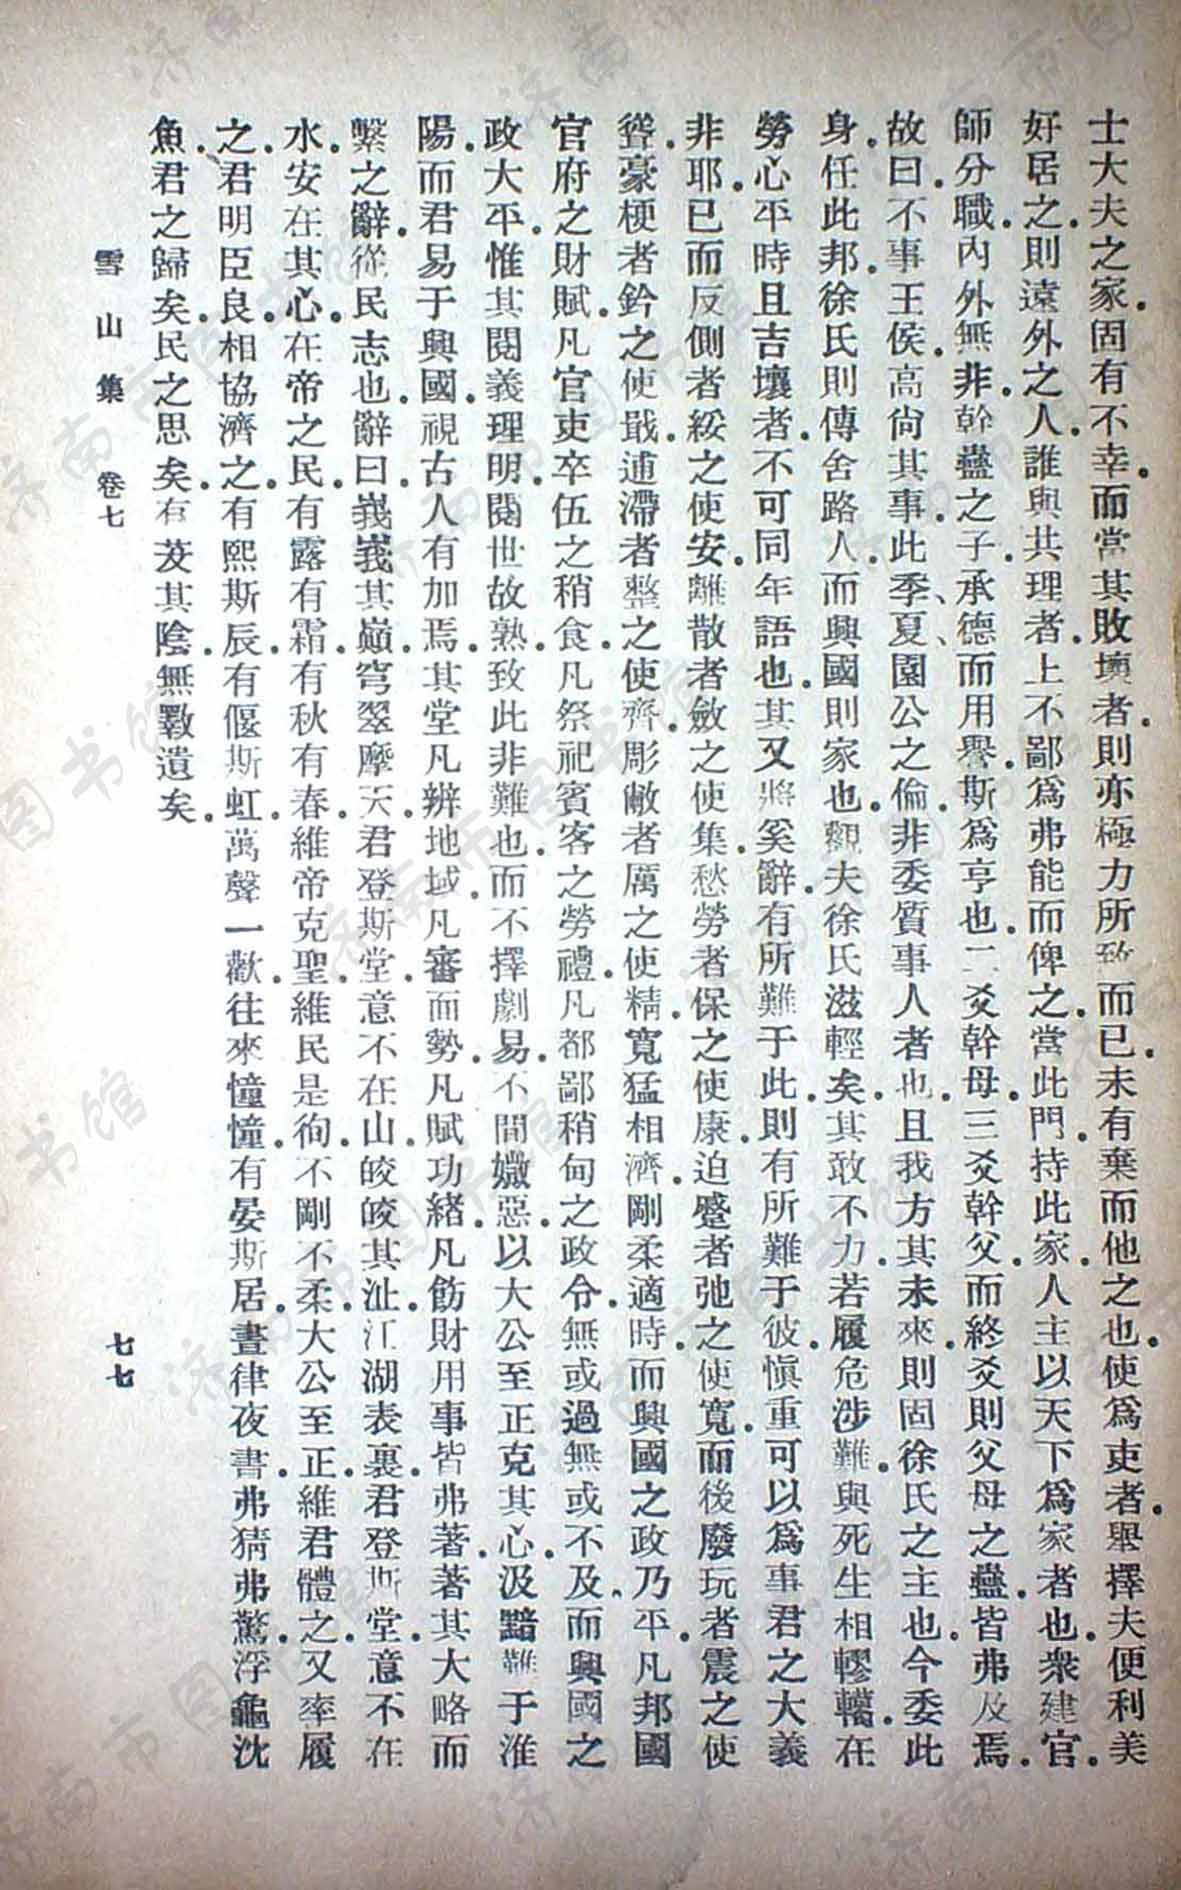 士大夫之家.固有不幸.而當其敗壞者.則亦極力所致而已.未有棄而他之也.使爲吏者.舉擇夫便利美
好居之.則遠外之人.誰與共理者.上不鄙爲弗能而俾之.當此門.持此家.人主以天下爲家者也.衆建官
師分職.內外無非幹蠱之子.承德而用譽.斯爲亨也.二爻幹母.三爻幹父.而終爻則父母之蠱.皆弗及焉.
故曰.不事王侯.高尙其事.此季、夏、園公之倫.非委質事人者也.且我方其未來.則固徐氏之主也.今委此
身.任此邦.徐氏則傳舍路人.而興國則家也.觀夫徐氏滋輕矣.其敢不力.若履危涉難.與死生相轇轕.在
勞心平時且吉壤者.不可同年語也.其又將奚辭.有所難于此.則有所難于彼.愼重可以爲事君之大義
非耶.已而反側者綏之使安.離散者斂之使集.愁勞者保之使康.迫蹙者弛之使寬.而後廢玩者震之使
聳.豪梗者鈐之使戢.逋滯者整之使齊.彫敝者厲之使精.寬猛相濟.剛柔適時.而興國之政乃平.凡邦國
官府之財賦.凡官吏卒伍之稍食.凡祭祀賓客之勞禮.凡都鄙稍甸之政令.無或過.無或不及.而興國之
政大平.惟其閱義理明.閱世故熟.致此非難也.而不擇劇易.不間媺惡.以大公至正克其心.汲黯難于淮
陽.而君易于興國.視古人有加焉.其堂凡辨地域.凡審面勢.凡賦功緖.凡飭財用事皆弗著.著其大略.而
繫之辭.從民志也.辭曰.峩峩其巓.穹翠摩天.君登斯堂.意不在山.皎皎其沚.江湖表裏.君登斯堂.意不在
水.安在其心.在帝之民.有露有霜.有秋有春.維帝克聖.維民是徇.不剛不柔.大公至正.維君體之.又率履
之.君明臣良.相協濟之.有熙斯辰.有偃斯虹.萬聲一歡.往來憧憧.有晏斯居.晝律夜書.弗猜弗驚.浮龜沈
魚.君之歸矣.民之思矣.有茇其陰.無斁遺矣.
雪山集 卷七
七七